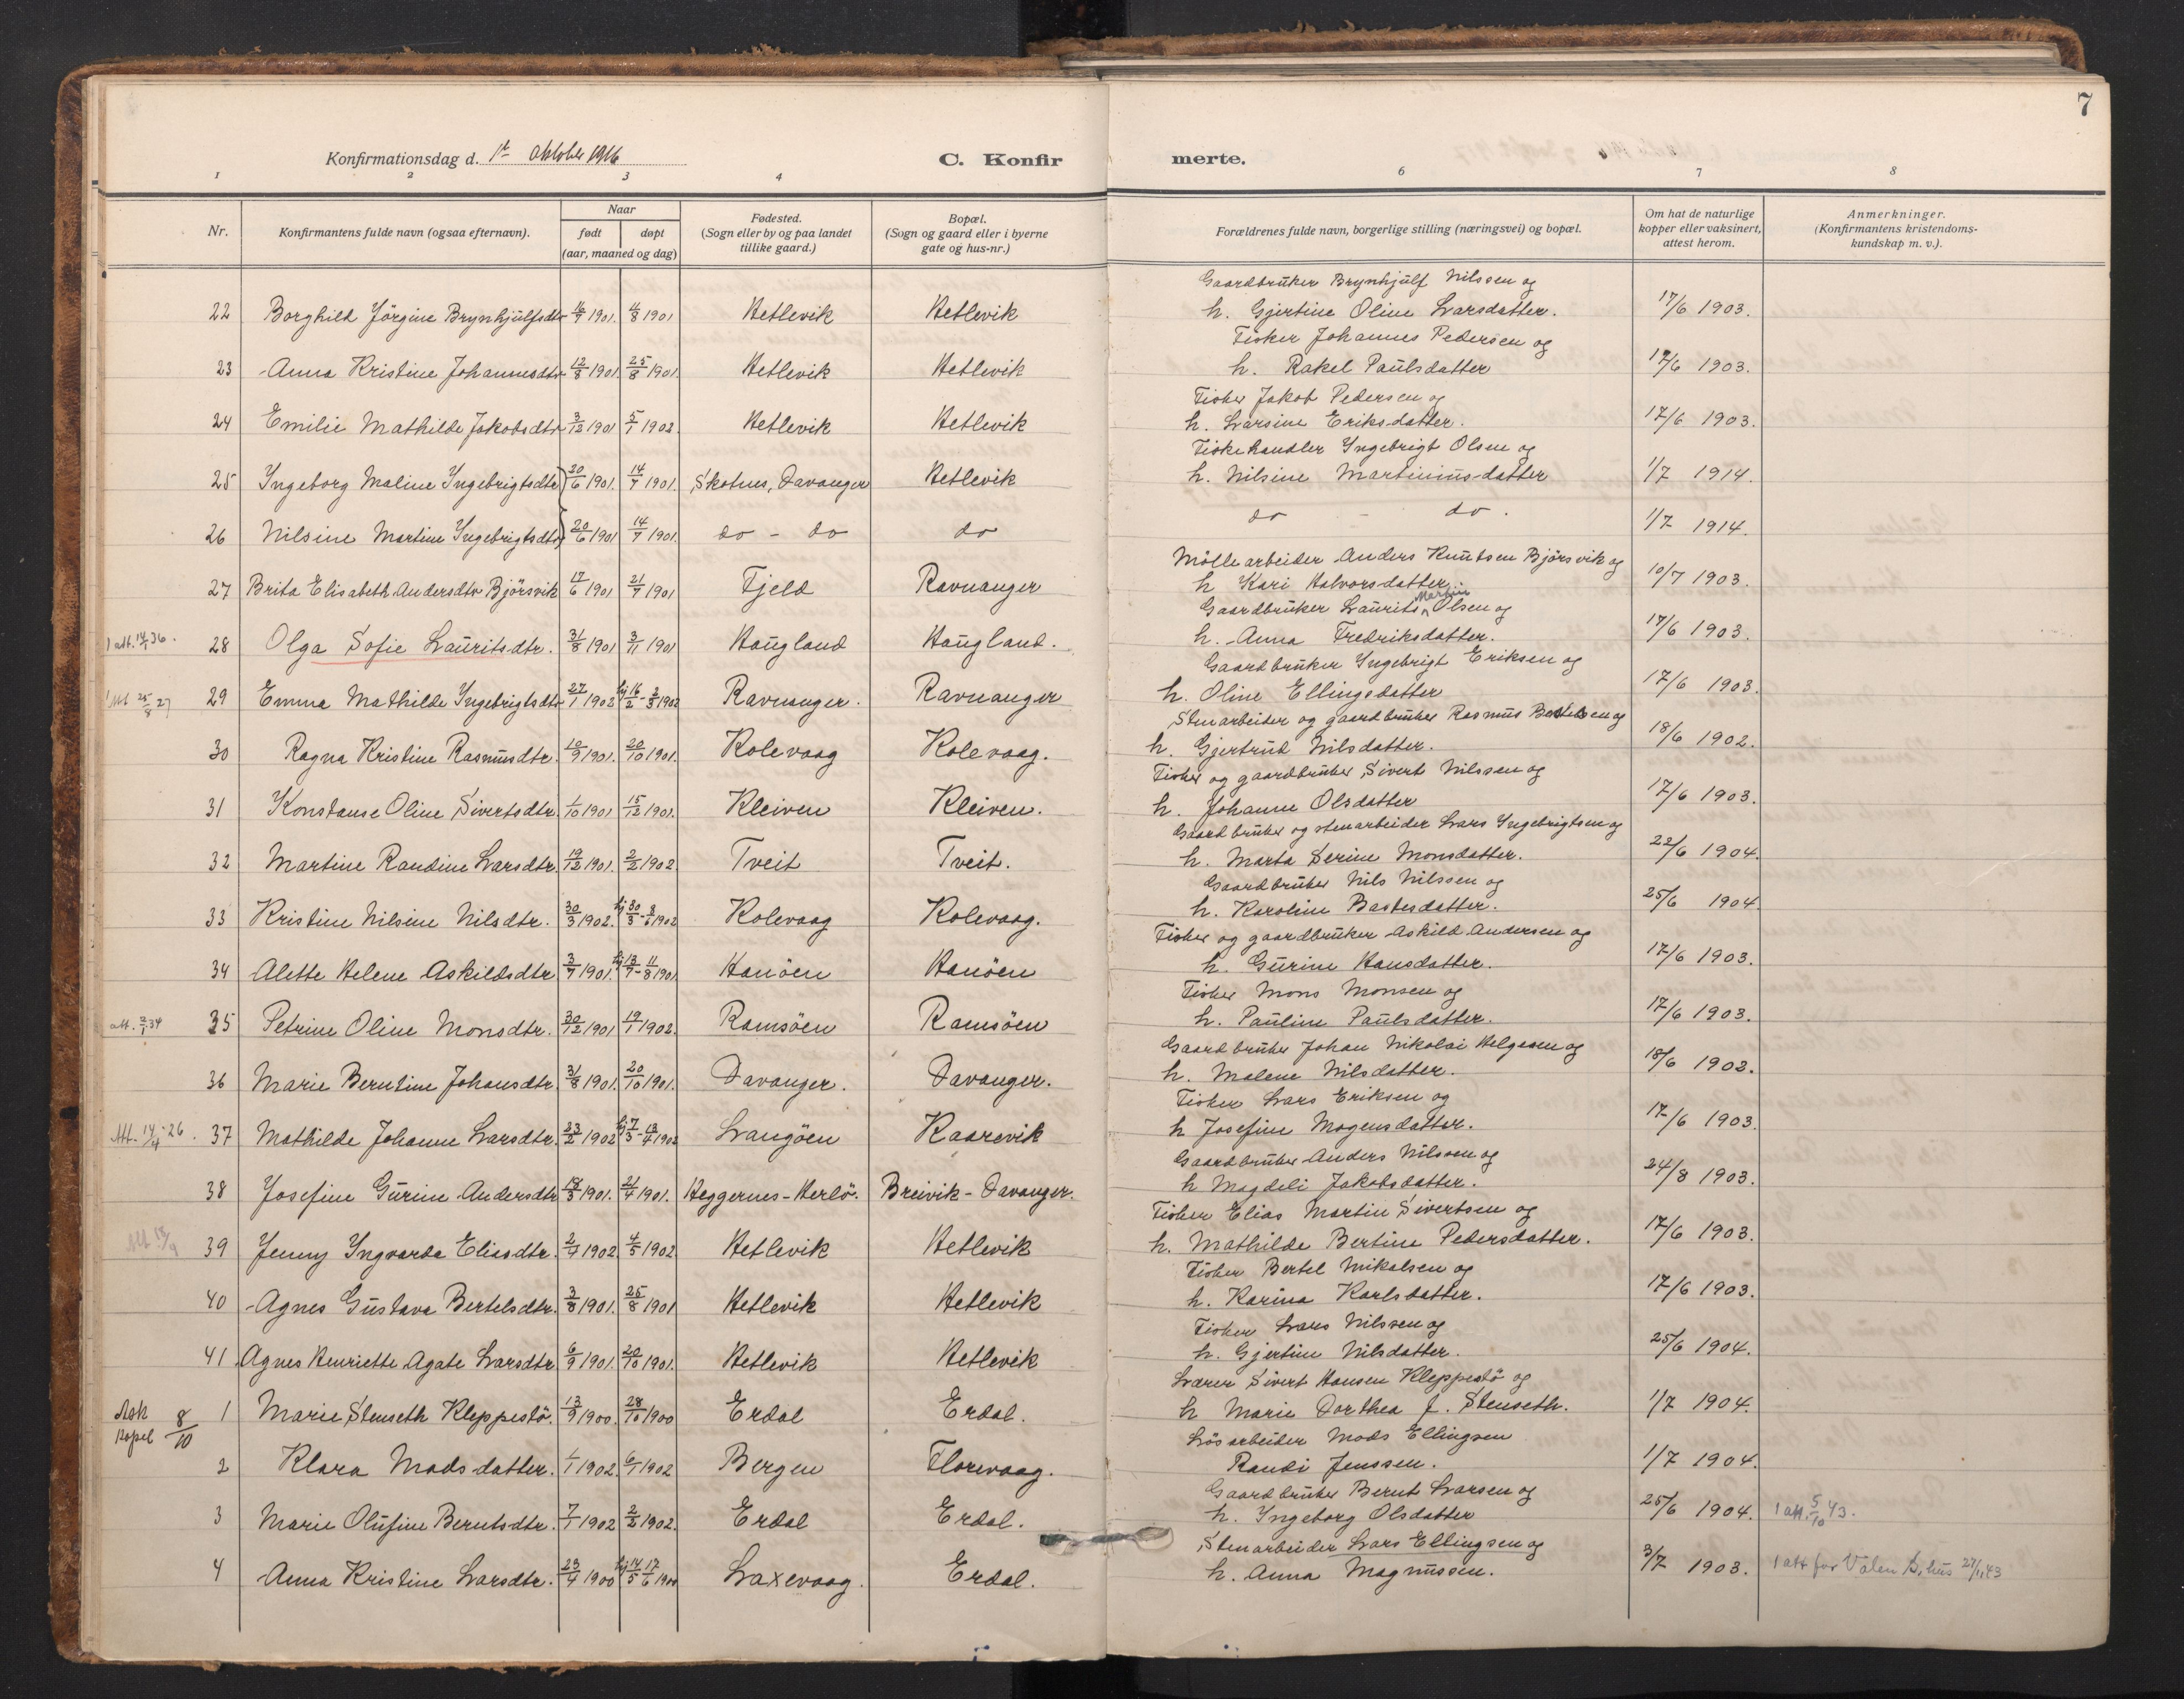 7
Konfirmationsdag d. 1ste oktober 1916
C. Konfirmerte.
1 2 3 4 6 7 8
Nr. Konfirmantens fulde navn (ogsaa efternavn). Naar født døpt (aar, maaned og dag) Fødested. (Sogn eller by og paa landet tillike gaard.) Bopæl. (Sogn og gaard eller i byerne gate og hus-nr.) Forældrenes fulde navn, borgerlige stilling (næringsvei) og bopæl. Om hat de naturlige kopper eller vaksinert, attest herom. Anmerkninger. (Konfirmantens kristendomskundskap m. v.).
Gaardbruker Brynhjulf Nilssen og
22 Borghild Jörgine Brynhjulfsdtr 16/7 1901. 4/8 1901 Hetlevik Hetlevik h. Gjertine Oline Larsdatter. 17/6 1903.
Fisker Johannes Pedersen og
23 Anna Kristine Johannesdtr 12/8 1901. 25/8 1901. Hetlevik Hetlevik h. Rakel Paulsdatter 17/6 1903.
Fisker Jakob Pedersen og
24 Emilie Mathilde Jakobsdtr 3/12 1901 5/1 1902. Hetlevik Hetlevik h. Larsine Eriksdatter. 17/6 1903.
Fiskehandler Ingebrigt Olsen og
25 Ingeborg Maline Ingebrigtsdtr 20/6 1901. 14/7 1901. Skotnes, Davanger Hetlevik h. Nilsine Martinius-datter 1/7 1914.
26 Nilsine Martine Ingebrigtsdtr 20/6 1901 14/7 1901. do - do do do - do. 1/7 1914.
Möllearbeider Anders Knutsen Björsvik og
27 Brita Elisabeth Andersdtr Björsvik 17/6 1901 21/7 1901 Fjeld Ravnanger h Kari Halvorsdatter. 10/7 1903.
Gaardbruker Laurits Martin Olsen og
1 att. 14/1 36. 28 Olga Sofie Lauritsdtr. 31/8 1901 3/11 1901 Haugland Haugland. h. Anna Fredriksdatter. 17/6 1903.
Gaardbruker Ingebrigt Eriksen og
1 Att 25/8 27 29 Emma Mathilde Ingebrigtsdtr 27/1 1902 hj 16/2 - 2/3 1902 Ravnanger. Ravnanger h. Oline Ellingsdatter 17/6 1903.
Stenarbeider og gaardbruker Rasmus Bertelsen og
30 Ragna Kristine Rasmusdtr. 10/9 1901. 20/10 1901. Kolevaag Kolevaag. h. Gjertrud Nilsdatter. 18/6 1902.
Fisker og gaardbruker Sivert Nilssen og
31 Konstanse Oline Sivertsdtr. 1/10 1901 15/12 1901. Kleiven Kleiven. h. Johanne Olsdatter 17/6 1903.
Gaardbruker og stenarbeider Lars Ingebrigtsen og
32 Martine Randine Larsdtr. 19/12 1901. 2/2 1902 Tveit Tveit. h. Marta Serine Monsdatter. 22/6 1904.
Gaardbruker Nils Nilssen og
33 Kristine Nilsine Nilsdtr. 30/3 1902. hj 30/3 - 8/6 1902 Kolevaag Kolevaag. h. Karoline Bastesdatter. 25/6 1904.
Fisker og gaardbruker Askild Andersen og
34 Alette Helene Askildsdtr 3/7 1901. hj 13/7 - 11/8 1901 Hanöen Hanöen h. Gurine Hansdatter. 17/6 1903.
Fisker Mons Monsen og
att. 2/1 34 35 Petrine Oline Monsdtr. 30/12 1901 19/1 1902. Ramsöen Ramsöen h. Pauline Paulsdatter. 17/6 1903.
Gaardbruker Johan Nikolai Helgesen og
36 Marie Berntine Johansdtr. 31/8 1901. 20/10 1901. Davanger. Davanger. h. Malene Nilsdatter. 18/6 1902.
Fisker Lars Eriksen og
Att. 14/4 - 26. 37 Mathilde Johanne Larsdtr. 23/2 1902 hj 7/3 - 13/4 1902 Langöen Kaarevik h Josefine Mogensdatter. 17/6 1903.
Gaardbruker Anders Nilssen og
38 Josefine Gurine Andersdtr 18/3 1901. 21/4 1901. Heggernes-Herlö. Breivik-Davanger. h Magdeli Jakobsdatter. 24/8 1903.
Fisker Elias Martin Sivertsen og
39 Jenny Ingvarda Eliasdtr. 2/4 1902. 4/5 1902. Hetlevik Hetlevik h. Mathilde Bertine Pedersdatter. 17/6 1903.
Fisker Bertel Mikalsen og
40 Agnes Gustava Bertelsdtr. 3/8 1901. 25/8 1901 Hetlevik Hetlevik h. Karina Karlsdatter. 17/6 1903.
Fisker Lars Nilssen og
41 Agnes Henriette Agate Larsdtr 6/9 1901. 20/10 1901. Hetlevik Hetlevik h. Gjertine Nilsdatter. 25/6 1904.
Lærer Sivert Hansen Kleppestö og
Ask Kapel 8/10 1 Marie Stenseth Kleppestö. 13/9 1900. 28/10 1900 Erdal Erdal. h Marie Dorthea f. Stenseth. 1/7 1904.
Lösarbeider Mads Ellingsen
2 Klara Madsdatter. 1/1 1902. 6/1 1902 Bergen Florevaag. Randi Jenssen. 1/7 1904.
Gaardbruker Bernt Larsen og
3 Marie Olufine Berntsdtr. 7/1 1902 2/2 1902. Erdal Erdal. h. Ingeborg Olsdatter 25/6 1904. 1 att. 5/10 43.
Stenarbeider Lars Ellingsen og
4 Anna Kristine Larsdtr. 23/4 1900 hj 14/5 17/6 1900 Laxevaag. Erdal. h. Anna Magnussen. 3/7 1903. 1 att for Valen S.hus 27/1 43